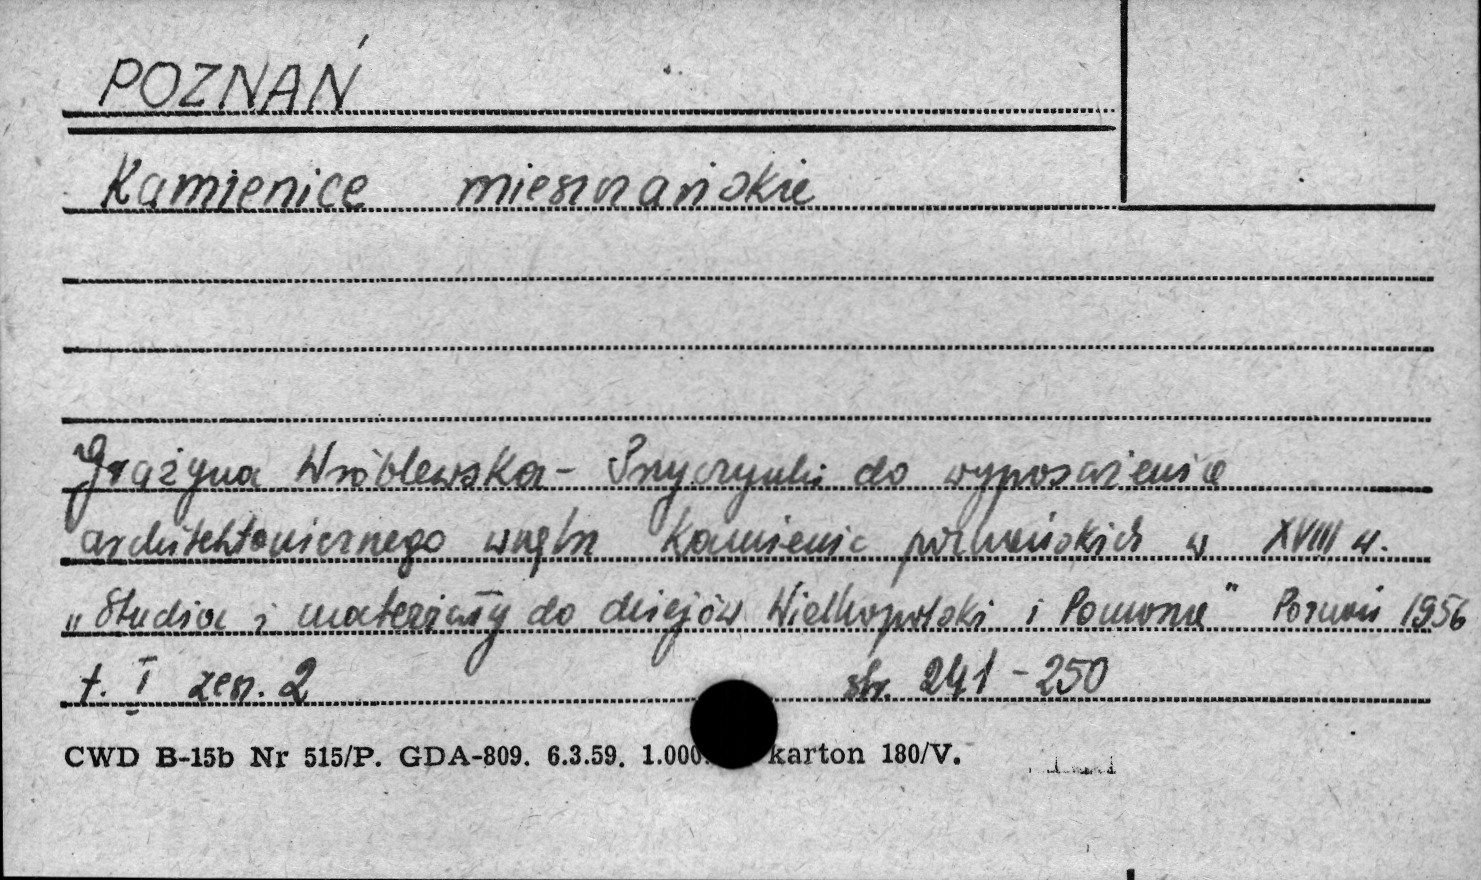 POZNAŃ
Kamienice mieszczańskie
Grażyna Wróblewska - Przyczynki do wyposażenia
architektonicznego wnętrz kamienic poznańskich w XVIII w.
„Studia i materiały do dziejów Wielkopolski i Pomorza" Poznań 1956
t. I zesz. 2 str. 241-250
CWD B-15b Nr 515/P. GDA-809. 6.3.59. 1.000. karton 180/V.